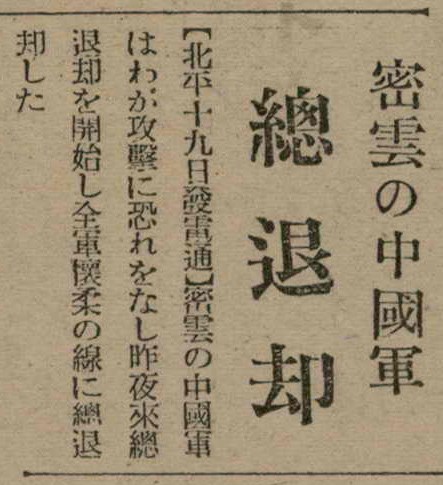 密雲の中國軍
總退却
【北平十九日發電通】密雲の中國軍
はわが攻擊に恐れをなし昨夜來總
退却を開始し全軍懷柔の線に總退
却した